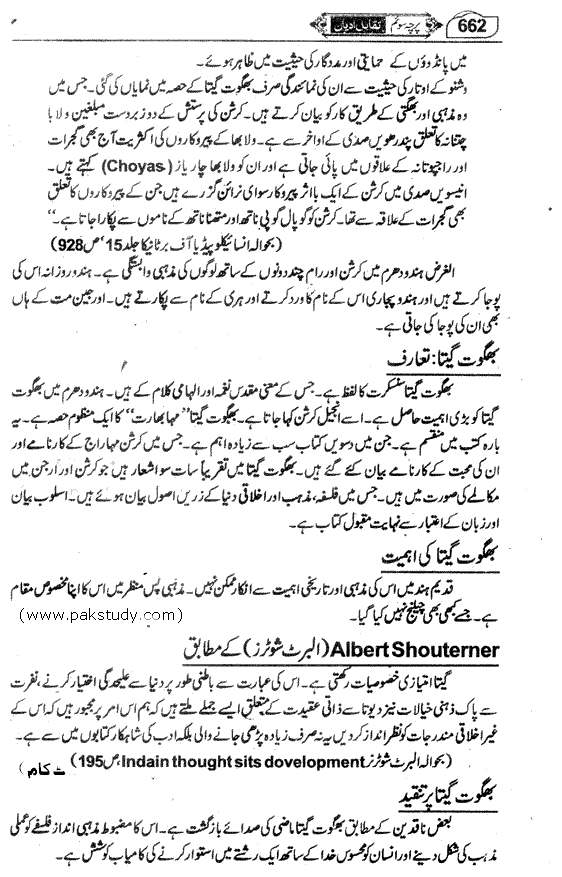 662 تقابل ادیان پرچہ سوئم
میں پانڈوؤں کے حمایتی اور مددگار کی حیثیت میں ظاہر ہوئے۔
وشنو کے اوتار کی حیثیت سے ان کی نمائندگی صرف بھگوت گیتا کے حصہ میں نمایاں کی گئی۔ جس میں
وہ مذہبی اور بھگتی کے طریق کار کو بیان کرتے ہیں۔ کرشن کی پرستش کے دو زبردست مبلغین ولا با
چتنانہ کا تعلق پندرھویں صدی کے اواخر سے ہے۔ ولا بھا کے پیروکاروں کی اکثریت آج بھی گجرات
اور راجپوتانہ کے علاقوں میں پائی جاتی ہے اور ان کو ولا بھا چاریاز (Choyas) کہتے ہیں۔
انیسویں صدی میں کرشن کے ایک با اثر پیروکار سوای نرائن گزرے ہیں جن کے پیروکاروں کا تعلق
بھی گجرات کے علاقہ سے تھا۔ کرشن کو گوپال گوپی ناتھ اور متھنا ناتھ کے ناموں سے پکارا جاتا ہے۔‘‘
(بحوالہ انسائیکلو پیڈیا آف برٹانیکا جلد 15‘ ص 928)
الغرض ہندو دھرم میں کرشن اور رام چند دونوں کے ساتھ لوگوں کی مذہبی وابستگی ہے۔ ہندو روزانہ اس کی
پوجا کرتے ہیں اور ہندو پجاری اس کے نام کا ورد کرتے اور ہری کے نام سے پکارتے ہیں۔ اور جین مت کے ہاں
بھی ان کی پوجا کی جاتی ہے۔
بھگوت گیتا: تعارف
بھگوت گیتا سنسکرت کا لفظ ہے۔ جس کے معنی مقدس نغمہ اور الہامی کلام کے ہیں۔ ہندو دھرم میں بھگوت
گیتا کو بڑی اہمیت حاصل ہے۔ اسے انجیل کرشن کہا جاتا ہے۔ بھگوت گیتا ’’مہا بھارت‘‘ کا ایک منظوم حصہ ہے۔ یہ
بارہ کتب میں منقسم ہے۔ جن میں دسویں کتاب سب سے زیادہ اہم ہے۔ جس میں کرشن مہاراج کے کارنامے اور
ان کی محبت کے کارنامے بیان کئے گئے ہیں۔ بھگوت گیتا میں تقریباً سات سو اشعار ہیں جو کرشن اور ارجن میں
مکالمے کی صورت میں ہیں۔ جس میں فلسفہ، مذہب اور اخلاقی دنیا کے زریں اصول بیان ہوئے ہیں۔ اسلوب بیان
اور زبان کے اعتبار سے نہایت مقبول کتاب ہے۔
بھگوت گیتا کی اہمیت
قدیم ہند میں اس کی مذہبی اور تاریخی اہمیت سے انکار ممکن نہیں۔ مذہبی پس منظر میں اس کا اپنا مخصوص مقام
ہے۔ جسے کبھی بھی چیلنج نہیں کیا گیا۔ (www.pakstudy.com)
Albert Shouterner (البرٹ شوٹرز) کے مطابق
گیتا امتیازی خصوصیات رکھتی ہے۔ اس کی عبارت سے باطنی طور پر دنیا سے علیحدگی اختیار کرنے، نفرت
سے پاک ذہنی خیالات نیز دیوتا سے ذاتی عقیدت کے متعلق ایسے جملے ملتے ہیں کہ ہم اس امر پر مجبور ہیں کہ اس کے
غیر اخلاقی مندرجات کو نظر انداز کر دیں یہ نہ صرف زیادہ پڑھی جانے والی بلکہ ادب کی شاہکار کتابوں میں سے ہے۔
(بحوالہ البرٹ شوٹرز Indain thought sits dovelopment، ص 195)
بھگوت گیتا پر تنقید
بعض ناقدین کے مطابق بھگوت گیتا ماضی کی صدائے بازگشت ہے۔ اس کا مضبوط مذہبی انداز فلسفے کو عملی
مذہب کی شکل دینے اور انسان کو محسوس خدا کے ساتھ ایک رشتے میں استوار کرنے کی کامیاب کوشش ہے۔